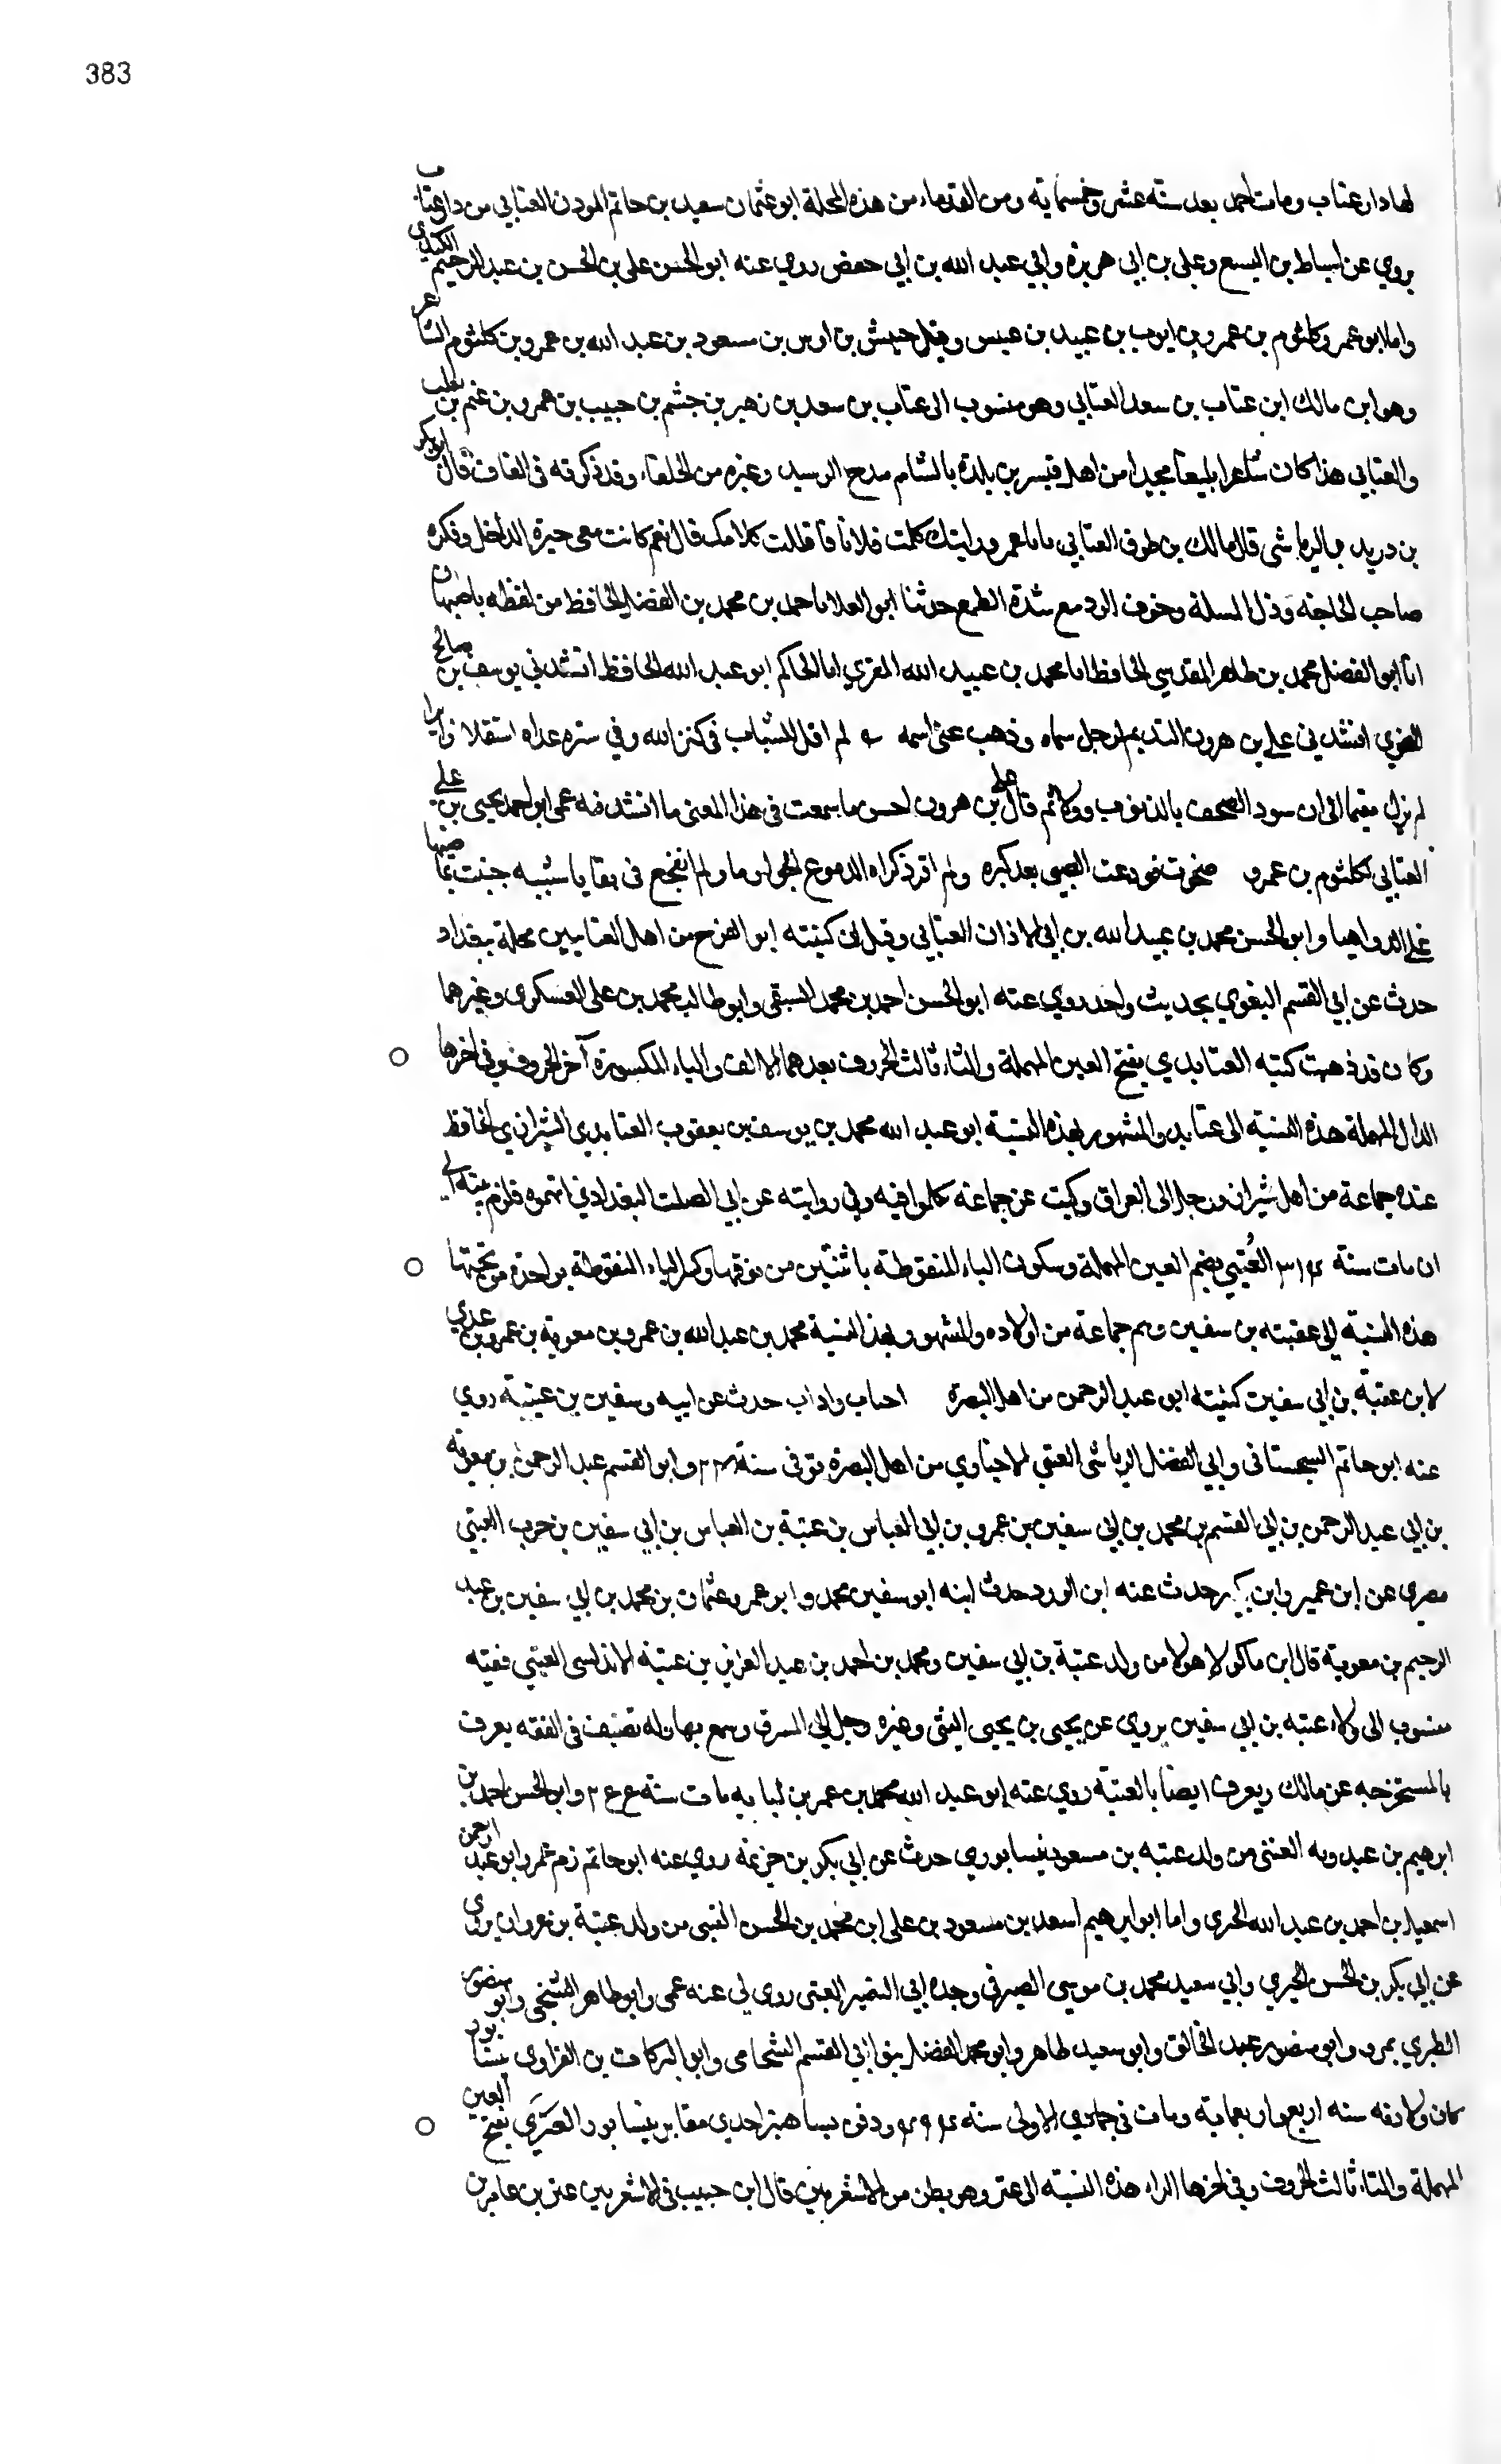 383
لها دار عتاب ومات احمد بعد سنة عشر وخمسماية ومن القدماء من هذه المحلة ابو عثمان سعيد بن حاتم المودن العتابي من دار عتاب
يروي عن اسباط بن اليسع وعلي بن ابي هريرة وابي عبد الله بن ابي حفص روي عنه ابو الحسن علي بن الحسن بن عبد الرحيم الكندي
واما ابو عمرو كلثوم بن عمرو بن ايوب بن عبيد بن عبس وقيل حبيش بن اوس بن مسعود بن عبد الله بن عمرو بن كلثوم الشاعر
وهو ابن مالك ابن عتاب بن سعد العتابي وهو منسوب الى عتاب بن سعد بن زهير بن جشم بن حبيب بن عمرو بن غنم بن تغلب
والعتابي هذا كان شاعرا بليغا مجيدا من اهل قنسرين بلدة بالشام مدح الرسيد وغيره من الخلفاء وقد ذكرته في القاف قال ابو بكر
بن دريد الرياشي قال مالك بن طوق العتابي يا با عمرو رايتك كلمت فلانا فاقللت كلامك قال نعم كانت معي حيرة الداخل وفكرة
صاحب الحاجة وذل المسلة وخوف الرد مع شدة الطمع حدثنا ابو العلا احمد بن محمد بن الفضل الحافظ من لفظه باصبهان
انا ابو الفضل محمد بن طاهر المقدسي الحافظ انا محمد بن عبيد الله انا الحاكم ابو عبد الله الحافظ انشدني يوسف بن صالح
انشدني علي بن هرون النديم لرجل سماه وذهب عني اسمه لم اقل للشباب في كنف الله وفي ستره غداه استقلا زايرا
لم يزل مقيما الى ان سود الصحف بالذنوب وولى ثم قال علي بن هرون احسن ما سمعت في هذا المعنى ما انشدنيه عمي ابو احمد يحيى بن علي
العتابي كلثوم بن عمرو بعد كبره ولم الدموع ولم في بقايا
وابو الحسن محمد بن عبيد الله بن ابي الاذان العتابي وقيل ان كنيته ابو الفرج من اهل العتابيين محلة ببغداد
حدث عن ابي القسم البغوي بحديث واحد روي عنه ابو الحسن احمد بن محمد العتيقي وابو طالب محمد بن علي العسكري وغيرهما
وكان قد ذهبت كتبه العتايدي بفتح العين المهملة والتاء ثالث الحروف بعدهما الالف والياء المكسورة آخر الحروف وفي اخرها
الدال المهملة هذه النسبة الى عتايد والمشهور بهذه النسبة ابو عبد الله محمد بن يوسف بن يعقوب العتايدي الشيرازي الحافظ
عنده جماعة من اهل شيراز ورحل الى العراق وكتب عن جماعة تكلموا فيه وفي روايته عن ابي الصلت البغدادي اتهموه فلزم بيته الى
ان مات سنة ٣١٤ العُتبي بضم العين المهملة وسكون التاء المنقوطة باثنتين من فوقها وكسر الباء المنقوطة بواحدة من تحتها
هذه النسبة الى عتبة بن سفين وهم جماعة من اولاده والمشهور بهذه النسبة محمد بن عبد الله بن عمرو بن معوية بن عمرو بن
لا بن عتبة بن ابي سفين كنيته ابو عبد الرحمن من اهل البصرة واداب حدث عن ابيه وسفين بن عيينة روي
عنه ابو حاتم السجستاني وابي الفضل الرياشي العتبي الاخباري من اهل البصرة توفي سنة ٢٢٨ وابو القسم عبد الرحمن بن معوية
بن ابي عبد الرحمن بن ابي القسم بن محمد بن ابي سفين بن عمرو بن ابي العباس بن عتبة بن العباس بن ابي سفين بن حرب العتبي
مصري عن ابن عفير وابن حدث عنه ابن الورد حدث ابنه ابو سفين محمد وابو عمرو عثمان بن محمد بن ابي سفين بن عبد
الرحيم بن معوية قال ابن ماكولا هولا من ولد عتبة بن ابي سفين ومحمد بن احمد بن عبد العزيز بن عتبة الاندلسي العتبي فقيه
منسوب الى ولاء عتبة بن ابي سفين يروي عن يحيى بن يحيى الليثي وغيره ورحل الى المشرق وسمع بها وله تصنيف في الفقه يعرف
بالمستخرجه عن مالك ويعرف ايضا بالعتبية روي عنه ابو عبد الله محمد بن عمر بن لبابه مات سنة وابو الحسن احمد بن
ابرهيم بن عبدويه العتبي من ولد عتبة بن مسعود نيسابوري حدث عن ابي بكر بن خزيمة روي عنه ابو حاتم وابو عبد الرحمن
اسمعيل بن احمد بن عبد الله الحيري واما ابو ابرهيم اسعد بن مسعود بن علي ابن محمد بن الحسن العتبي من ولد عتبة بن غزوان يروي
عن ابي بكر بن الحسن الحيري وابي سعيد محمد بن موسى الصيرفي وجده ابي النضر العتبي روي لي عنه عمي وابو طاهر السنجي وابو منصور
الطبري بمرو وابو منصور عبد الخالق وابو سعيد طاهر وابو محمد الفضل بنو ابي القسم الشحامي وابو البركات بن الفراوي نيسابور
كان ولادته سنة اربع واربعماية ومات في جمادي الاولى سنة ٤٩٤ ودفن احدي مقابر نيسابور العتري بفتح العين
المهملة والتاء ثالث الحروف وفي اخرها الراء هذه النسبة الى عتر وهو بطن من الاشعريين قال ابن حبيب في الاشعريين عتر بن عامر بن